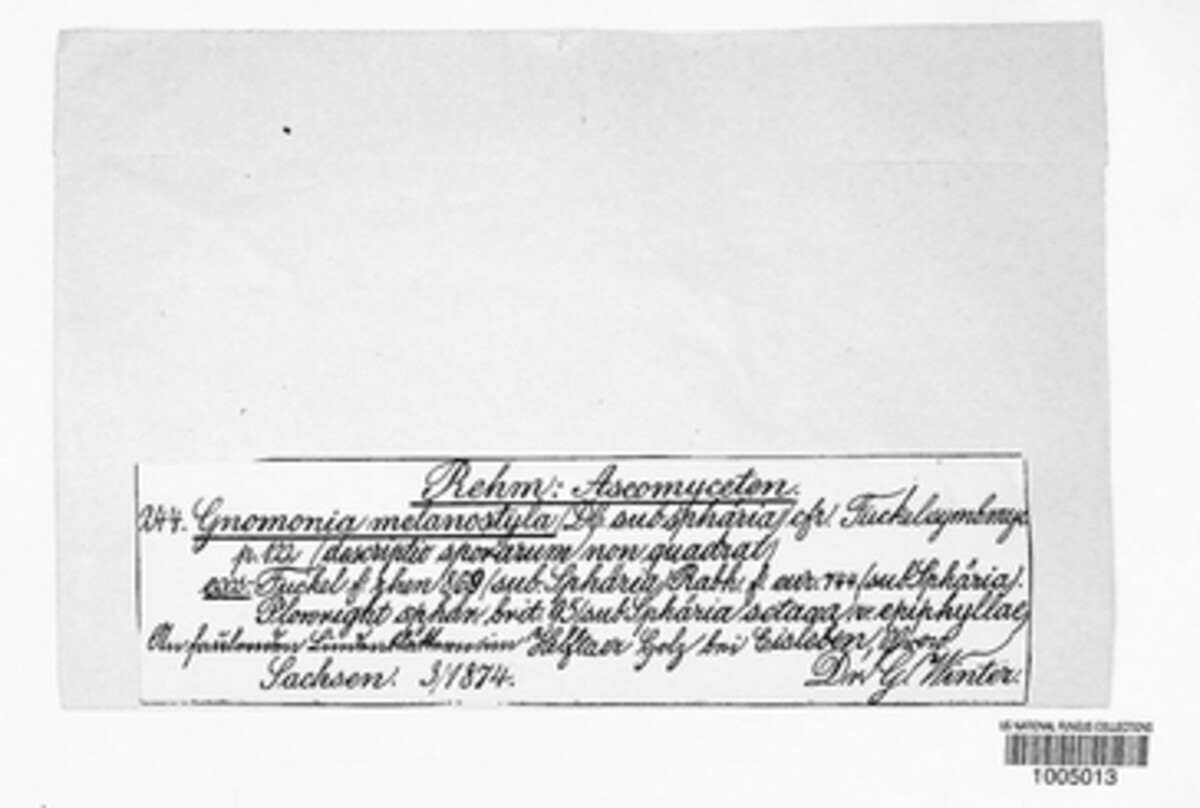 Rehm: Ascomyceten.
244. Gnomonia melanostyla (DC sub Sphäria) cfr. Fuckel symb. myc.
p. 122 (descriptio sporarum non quadrat)
exs. Fuckel f. rhen 869 (sub Sphäria) Rabh. f. eur. 744 (sub Sphäria).
Plowright sphär. brit. 95 (sub Sphäria setacea v. epiphyllae)
An faulenden Lindenblättern im Helftaer Holz bei Eisleben, Prov.
Sachsen. 3/1874. Dr. G. Winter.
US NATIONAL FUNGUS COLLECTIONS
1005013